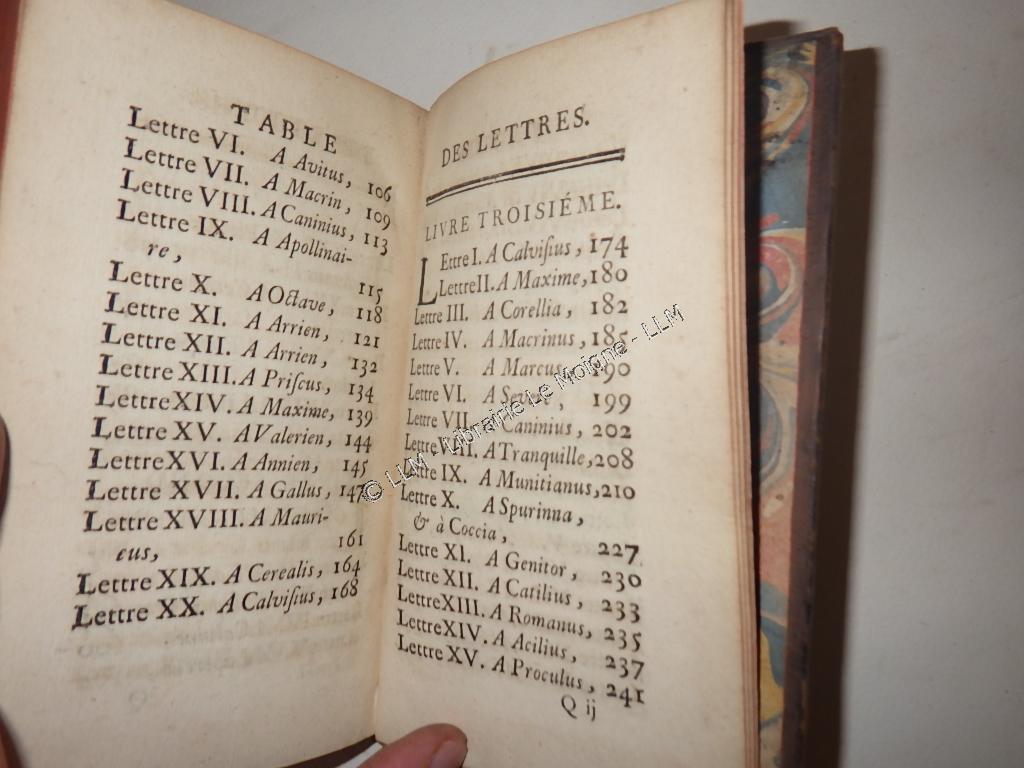 TABLE
Lettre VI. A Avitus, 106
Lettre VII. A Macrin, 109
Lettre VIII. A Caninius, 113
Lettre IX. A Apollinai-
re, 115
Lettre X. A Octave, 118
Lettre XI. A Arrien, 121
Lettre XII. A Arrien, 132
Lettre XIII. A Priſcus, 134
Lettre XIV. A Maxime, 139
Lettre XV. A Valerien, 144
Lettre XVI. A Annien, 145
Lettre XVII. A Gallus, 147
Lettre XVIII. A Mauri-
cus, 161
Lettre XIX. A Cerealis, 164
Lettre XX. A Calviſius, 168
DES LETTRES.
LIVRE TROISIÉME.
LEttre I. A Calviſius, 174
Lettre II. A Maxime, 180
Lettre III. A Corellia, 182
Lettre IV. A Macrinus, 185
Lettre V. A Marcus, 190
Lettre VI. A 199
Lettre VII. A Caninius, 202
Lettre VIII. A Tranquille, 208
Lettre IX. A Munitianus, 210
Lettre X. A Spurinna,
& à Coccia, 227
Lettre XI. A Genitor, 230
Lettre XII. A Catilius, 233
Lettre XIII. A Romanus, 235
Lettre XIV. A Acilius, 237
Lettre XV. A Proculus, 241
Q ij
© LLM - Librairie Le Moigne - LLM